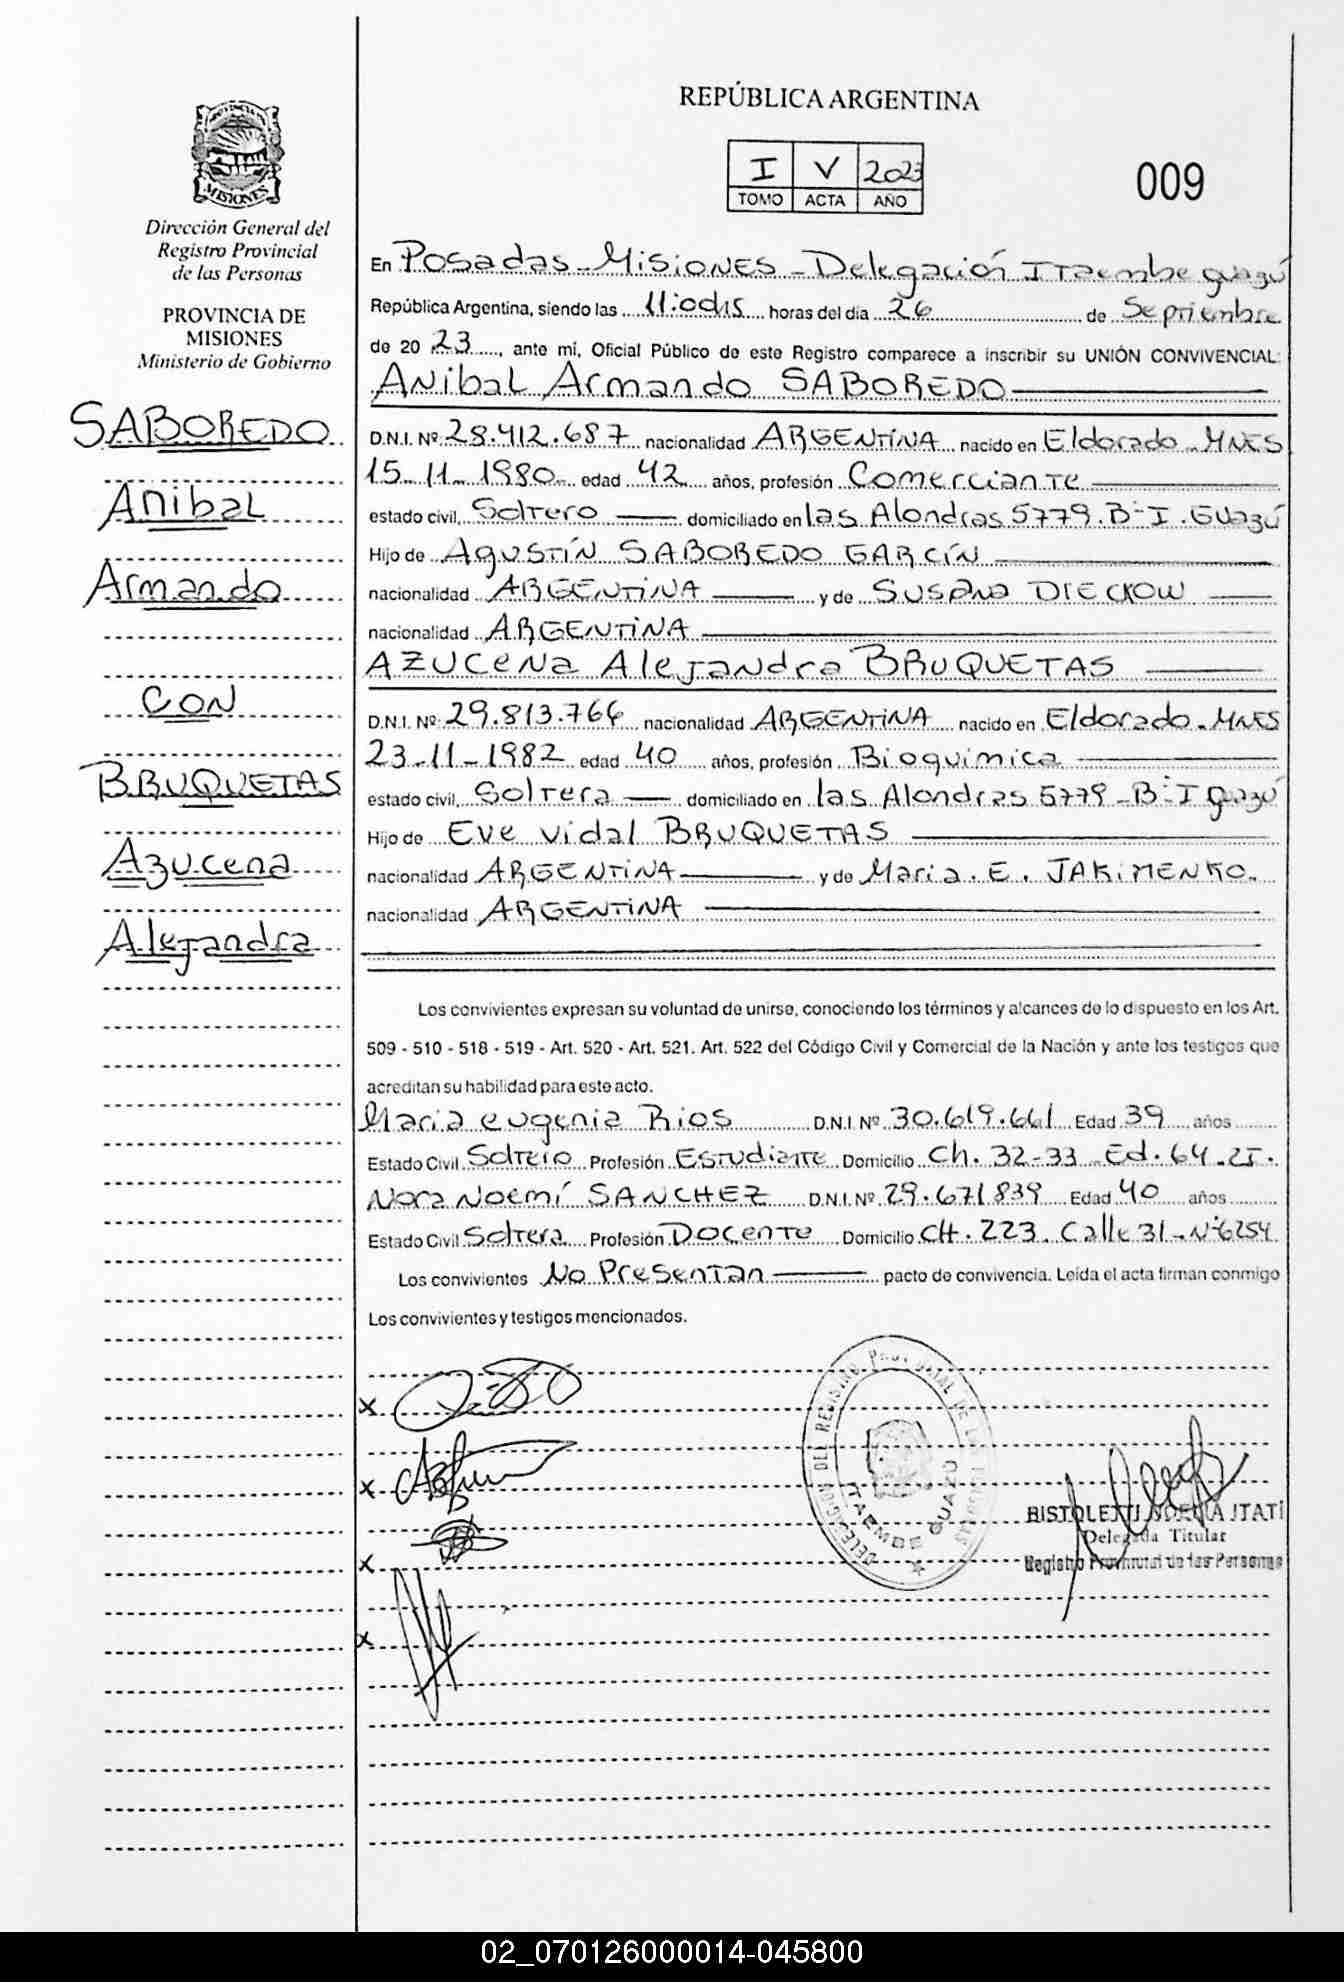 PROVINCIA DE
MISIONES
Dirección General del
Registro Provincial
de las Personas
PROVINCIA DE
MISIONES
Ministerio de Gobierno
SABOREDO
Anibal
Armando
CON
BRUQUETAS
Azucena
Alejandra
REPÚBLICA ARGENTINA
I V 2023
TOMO ACTA AÑO
009
En Posadas - Misiones - Delegación Itaembe guazú
República Argentina, siendo las 11:00hs horas del día 26 de Septiembre
de 2023, ante mí, Oficial Público de este Registro comparece a inscribir su UNIÓN CONVIVENCIAL:
Anibal Armando SABOREDO
D.N.I. Nº 28.412.687 nacionalidad ARGENTINA nacido en Eldorado - MNES
15-11-1980 edad 42 años, profesión Comerciante
estado civil, Soltero domiciliado en las Alondras 5779.B-I.Guazú
Hijo de Agustín SABOREDO GARCÍN
nacionalidad ARGENTINA y de Susana DIECKOW
nacionalidad ARGENTINA
AZUCENA Alejandra BRUQUETAS
D.N.I. Nº 29.813.766 nacionalidad ARGENTINA nacido en Eldorado - MNES
23-11-1982 edad 40 años, profesión Bioquimica
estado civil, Soltera domiciliado en las Alondras 5779-B-I guazú
Hijo de Eve Vidal BRUQUETAS
nacionalidad ARGENTINA y de Maria. E. JAKIMENKO.
nacionalidad ARGENTINA
Los convivientes expresan su voluntad de unirse, conociendo los términos y alcances de lo dispuesto en los Art.
509 - 510 - 518 - 519 - Art. 520 - Art. 521. Art. 522 del Código Civil y Comercial de la Nación y ante los testigos que
acreditan su habilidad para este acto.
Maria eugenia Rios D.N.I. Nº 30.619.661 Edad 39 años
Estado Civil Soltero Profesión Estudiante Domicilio Ch. 32-33 Ed. 64.
Nora Noemí SANCHEZ D.N.I. Nº 29.671839 Edad 40 años
Estado Civil Soltera Profesión Docente Domicilio CH. 223. Calle 31 - Nº6254
Los convivientes No Presentan pacto de convivencia. Leída el acta firman conmigo
Los convivientes y testigos mencionados.
X
X
X
X
DELEGACION DEL REGISTRO PROVINCIAL DE LAS PERSONAS
ITAEMBE GUAZU
BISTOLETTI NOELIA ITATI
Delegada Titular
Registro Provincial de las Personas
02_070126000014-045800